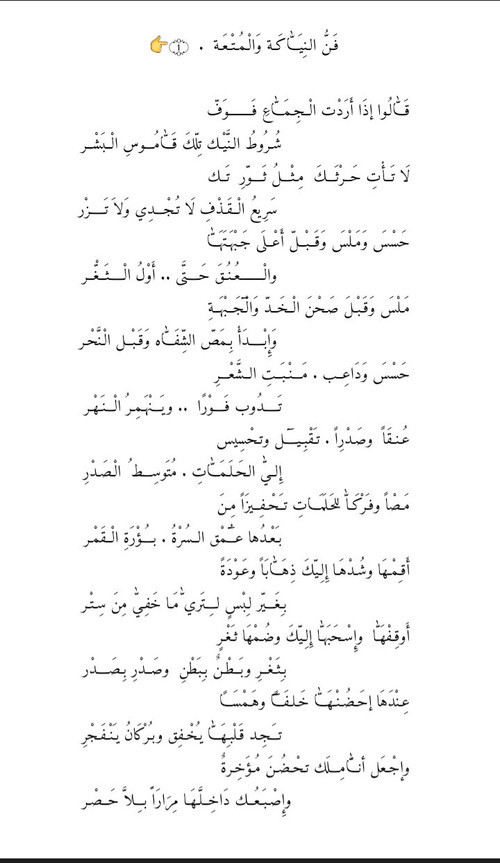 فَنُّ النِيَـٰاكَة وَالْمُتْعَة . ١ 👉
قَـٰالُوا إذَا أَرَدْت الْجِمَـٰاعِ فَــوَفّ
شُرُوطُ النَّيْك تِلْكَ قَـٰامُـوسِ الْبَشْـر
لَا تَـأْتِ حَـرْثَـكَ مِثْـلُ ثَــوّرِ تَـك
سَرِيعُ الْقَـذْفِ لَا تُجْـدِي وَلاَ تَــزْر
حَسْسَ وَمَلْسَ وَقَبْـلّ أَعْـلَى جَبْهَتَهَـٰا
والْــعُنُقَ حَـتَّى .. أَوْلُ الْـثَـغُّـر
مَلْسَ وَقَبْلَ صَحْنَ الْـخَـدّ وَالْجَبْهَـةِ
وَإِبْـدَأْ بِمَصّ الشِّفَـٰاه وَقَبْـل النَّحْر
حَسْسَ وَدَاعِب . مَـنْبَتِ الـشَّعْـرِ
تَـــدُوب فَــوْرًا .. ويَـنْهَمِرُ الْـنَهْـر
عُـنقَاً وصَدْرِاً . تَقْبِيــّل وتحْسِيس
إِلـيّ الحَـلَـمَـٰاتِ . مُتَوسِـطُ الْصَدْرِ
مَـصْاً وفَرْكَـٰا لحَلَمَـاتِ تَـحْفِيزَاً مِنَ
بَعْدُها عـُمْق الـسُرّةُ . بـُؤْرَةِ الْقَمْر
أَقِمْهَا وشُدْهَـا إِلِيّكَ ذِهَـٰابَاً وَعَوْدَةً
بِغَيـّر لِبْسٍ لِــتَرِي مَـٰا خَفِيّ مِنَ سِتْر
أَوقِفْهَـٰا وإِسْحَبَهَا إِلِيّكَ وضُمْهَا ثَغْرٍ
بِثَغْـرِ وبَـطْنٌ بِبَطْنِ وصَدْرِ بِـصَــدْر
عِنْدَهَا إحَضُـنْهَـٰا خَـلفَـٰا وهَـمْسَـًا
تَـجِد قَلْبِهَـٰا يُخْفِق وبُرْكَانُ يَنْفَجْرِ
وإجْعَل أَنَـٰامِـلَك تحْضُنَ مُؤَخِـرةٌ
وإصْبَعُـك دَاخِـلّهَـا مِرَارَاً بِـلاَّ حَصْر